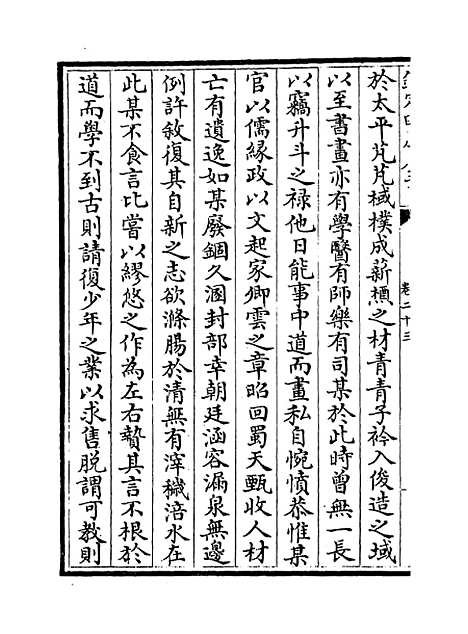 於太平芃芃棫樸成薪槱之材青青子衿入俊造之域
以至書畫亦有學醫有師樂有司某於此時曾無一長
以竊升斗之禄他日能事中道而畫私自惋憤恭惟某
官以儒縁政以文起家卿雲之章昭回蜀天甄收人材
亡有遺逸如某廢錮久溷封部幸朝廷涵容漏泉無邊
例許敘復其自新之志欲滌腸於清無有滓穢涪水在
此某不食言比嘗以繆悠之作為左右贄其言不根於
道而學不到古則請復少年之業以求售脱謂可教則
卷二十三